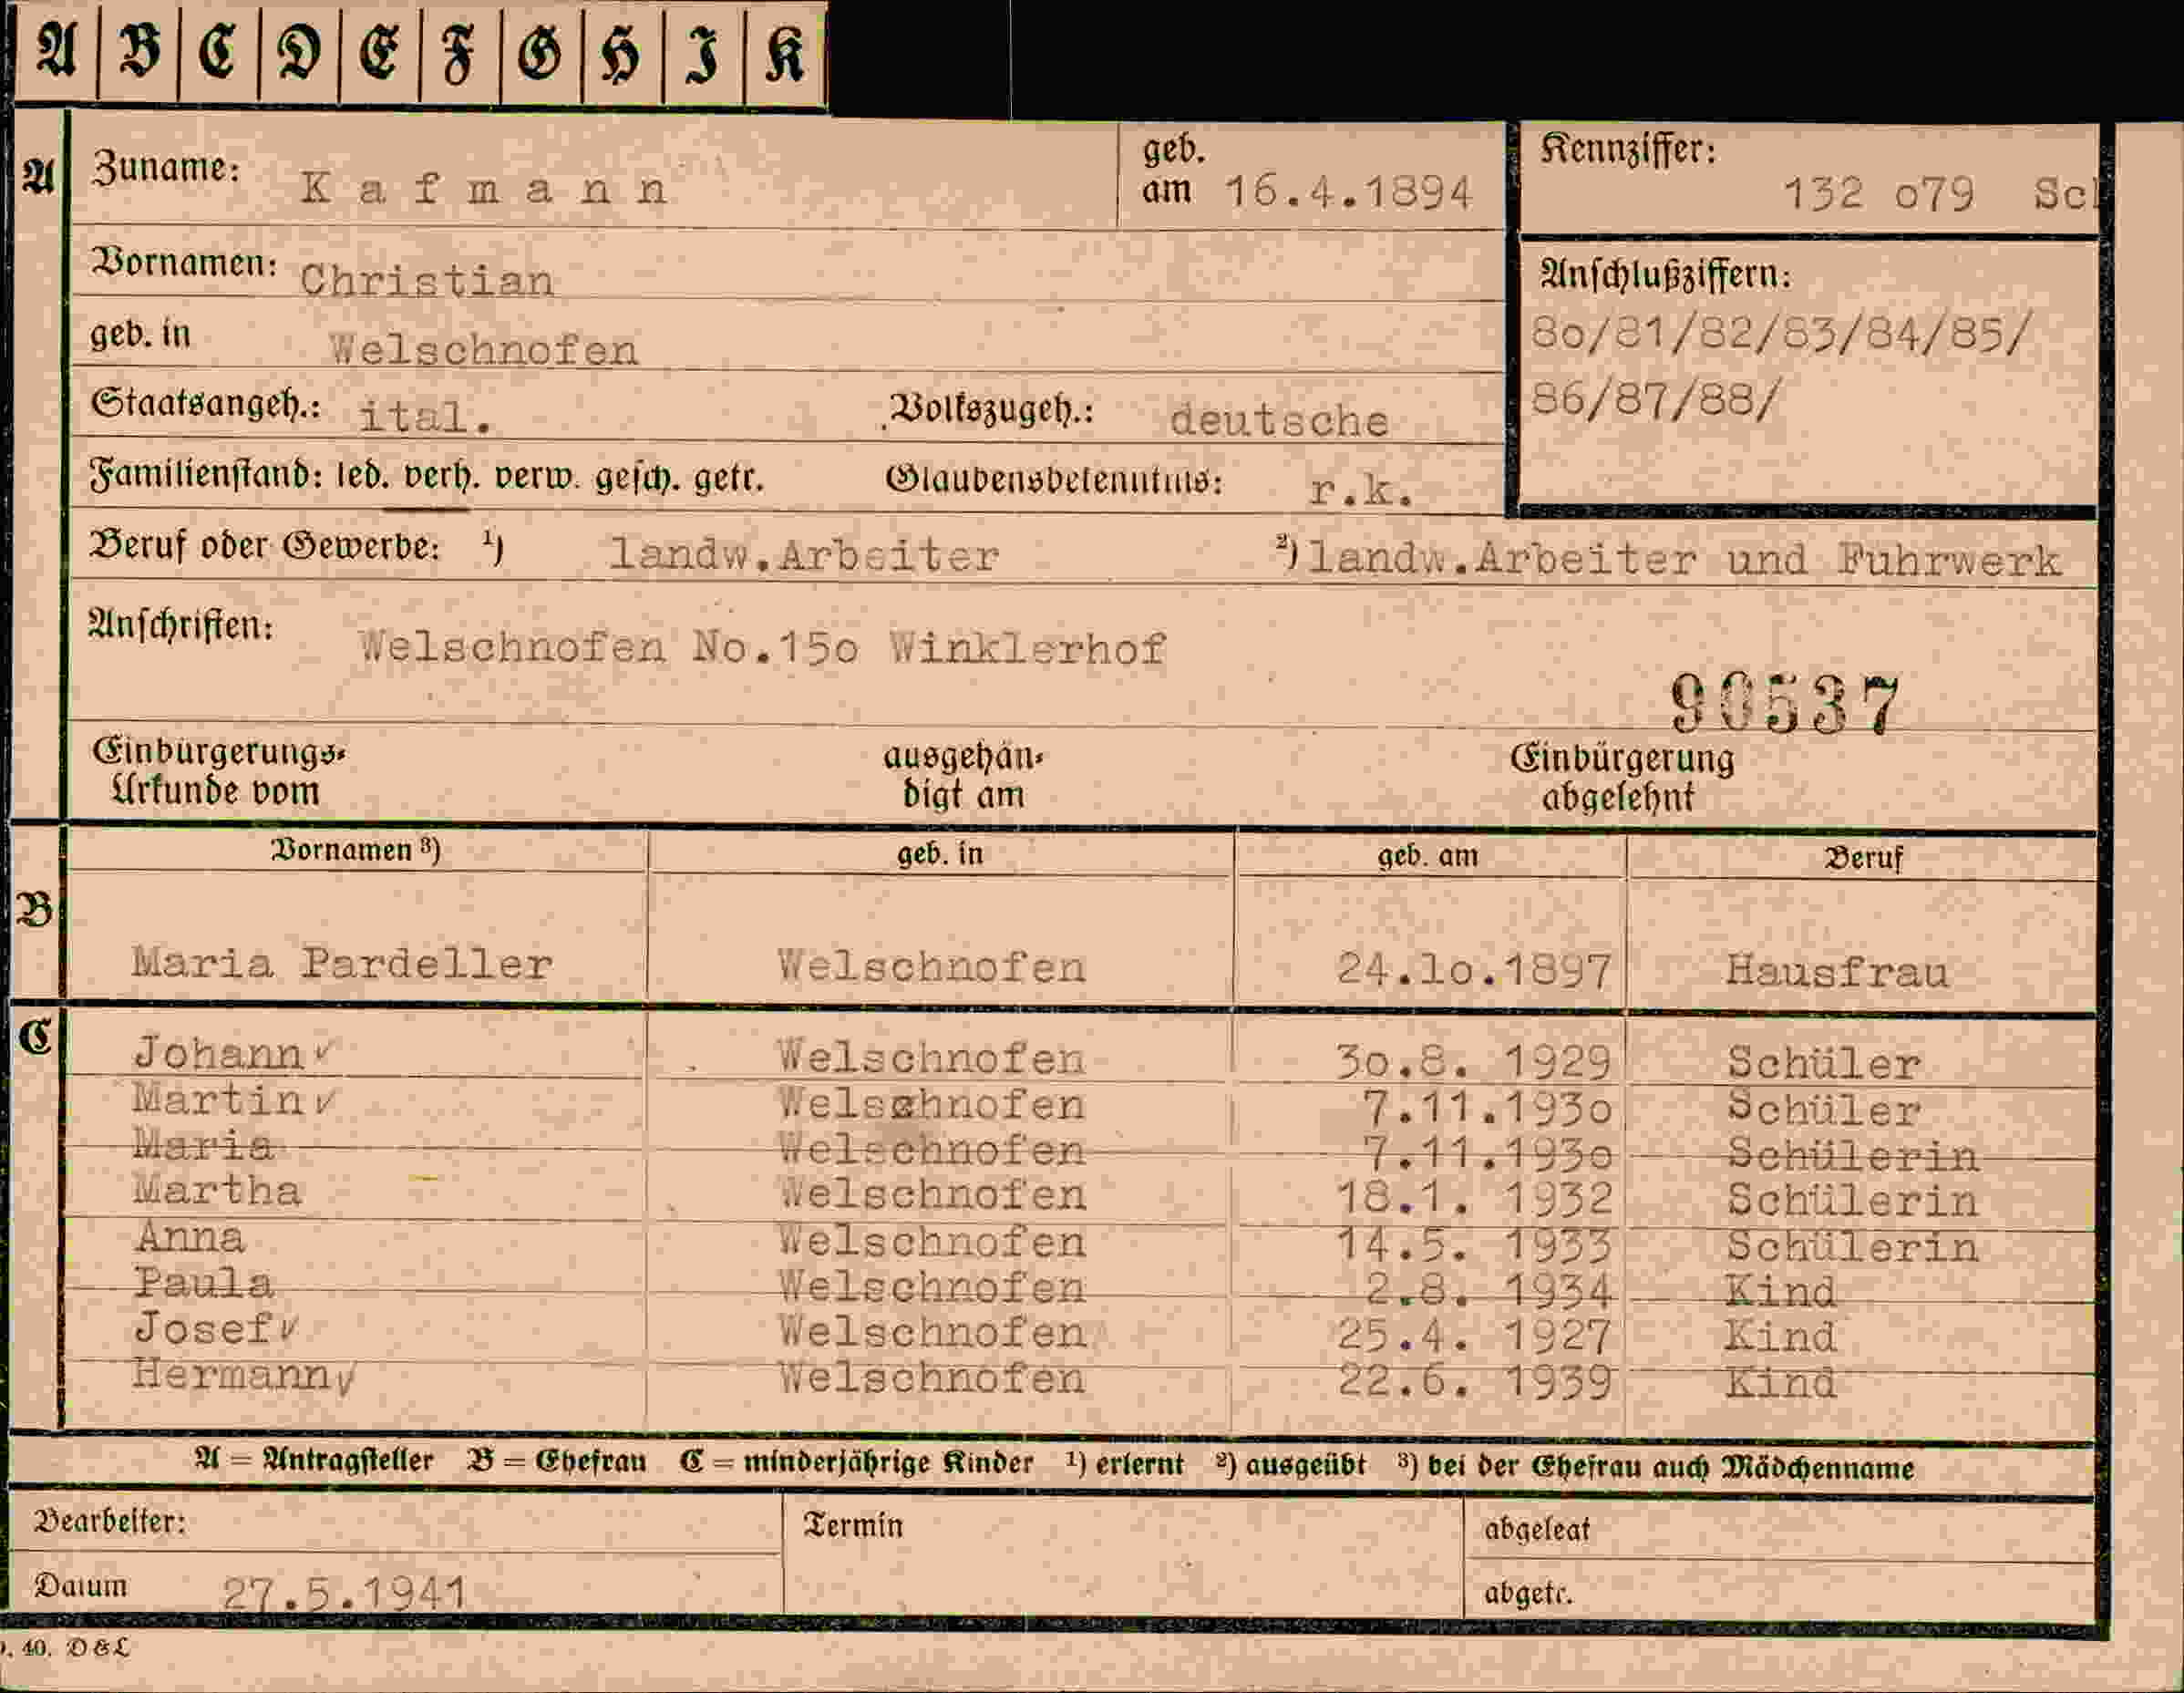 A B C D E F G H I K
A Zuname: Kafmann geb. am 16.4.1894 Kennziffer: 132 o79 Sch
Vornamen: Christian Anschlußziffern:
geb. in Welschnofen 8o/81/82/83/84/85/
Staatsangeh.: ital. Volkszugeh.: deutsche 86/87/88/
Familienstand: led. verh. verw. gesch. getr. Glaubensbekenntnis: r.k.
Beruf oder Gewerbe: ¹) landw.Arbeiter ²) landw.Arbeiter und Fuhrwerk
Anschriften: Welschnofen No.15o Winklerhof
90537
Einbürgerungs- ausgehän- Einbürgerung
Urkunde vom digt am abgelehnt
Vornamen ³) geb. in geb. am Beruf
B
Maria Pardeller Welschnofen 24.lo.1897 Hausfrau
C
Johann ✓ Welschnofen 3o.8. 1929 Schüler
Martin ✓ Welschnofen 7.11.193o Schüler
Maria Welschnofen 7.11.193o Schülerin
Martha Welschnofen 18.1. 1932 Schülerin
Anna Welschnofen 14.5. 1933 Schülerin
Paula Welschnofen 2.8. 1934 Kind
Josef ✓ Welschnofen 25.4. 1927 Kind
Hermann ✓ Welschnofen 22.6. 1939 Kind
A = Antragsteller B = Ehefrau C = minderjährige Kinder ¹) erlernt ²) ausgeübt ³) bei der Ehefrau auch Mädchenname
Bearbeiter: Termin abgelegt
Datum 27.5.1941 abgetr.
40. D & L